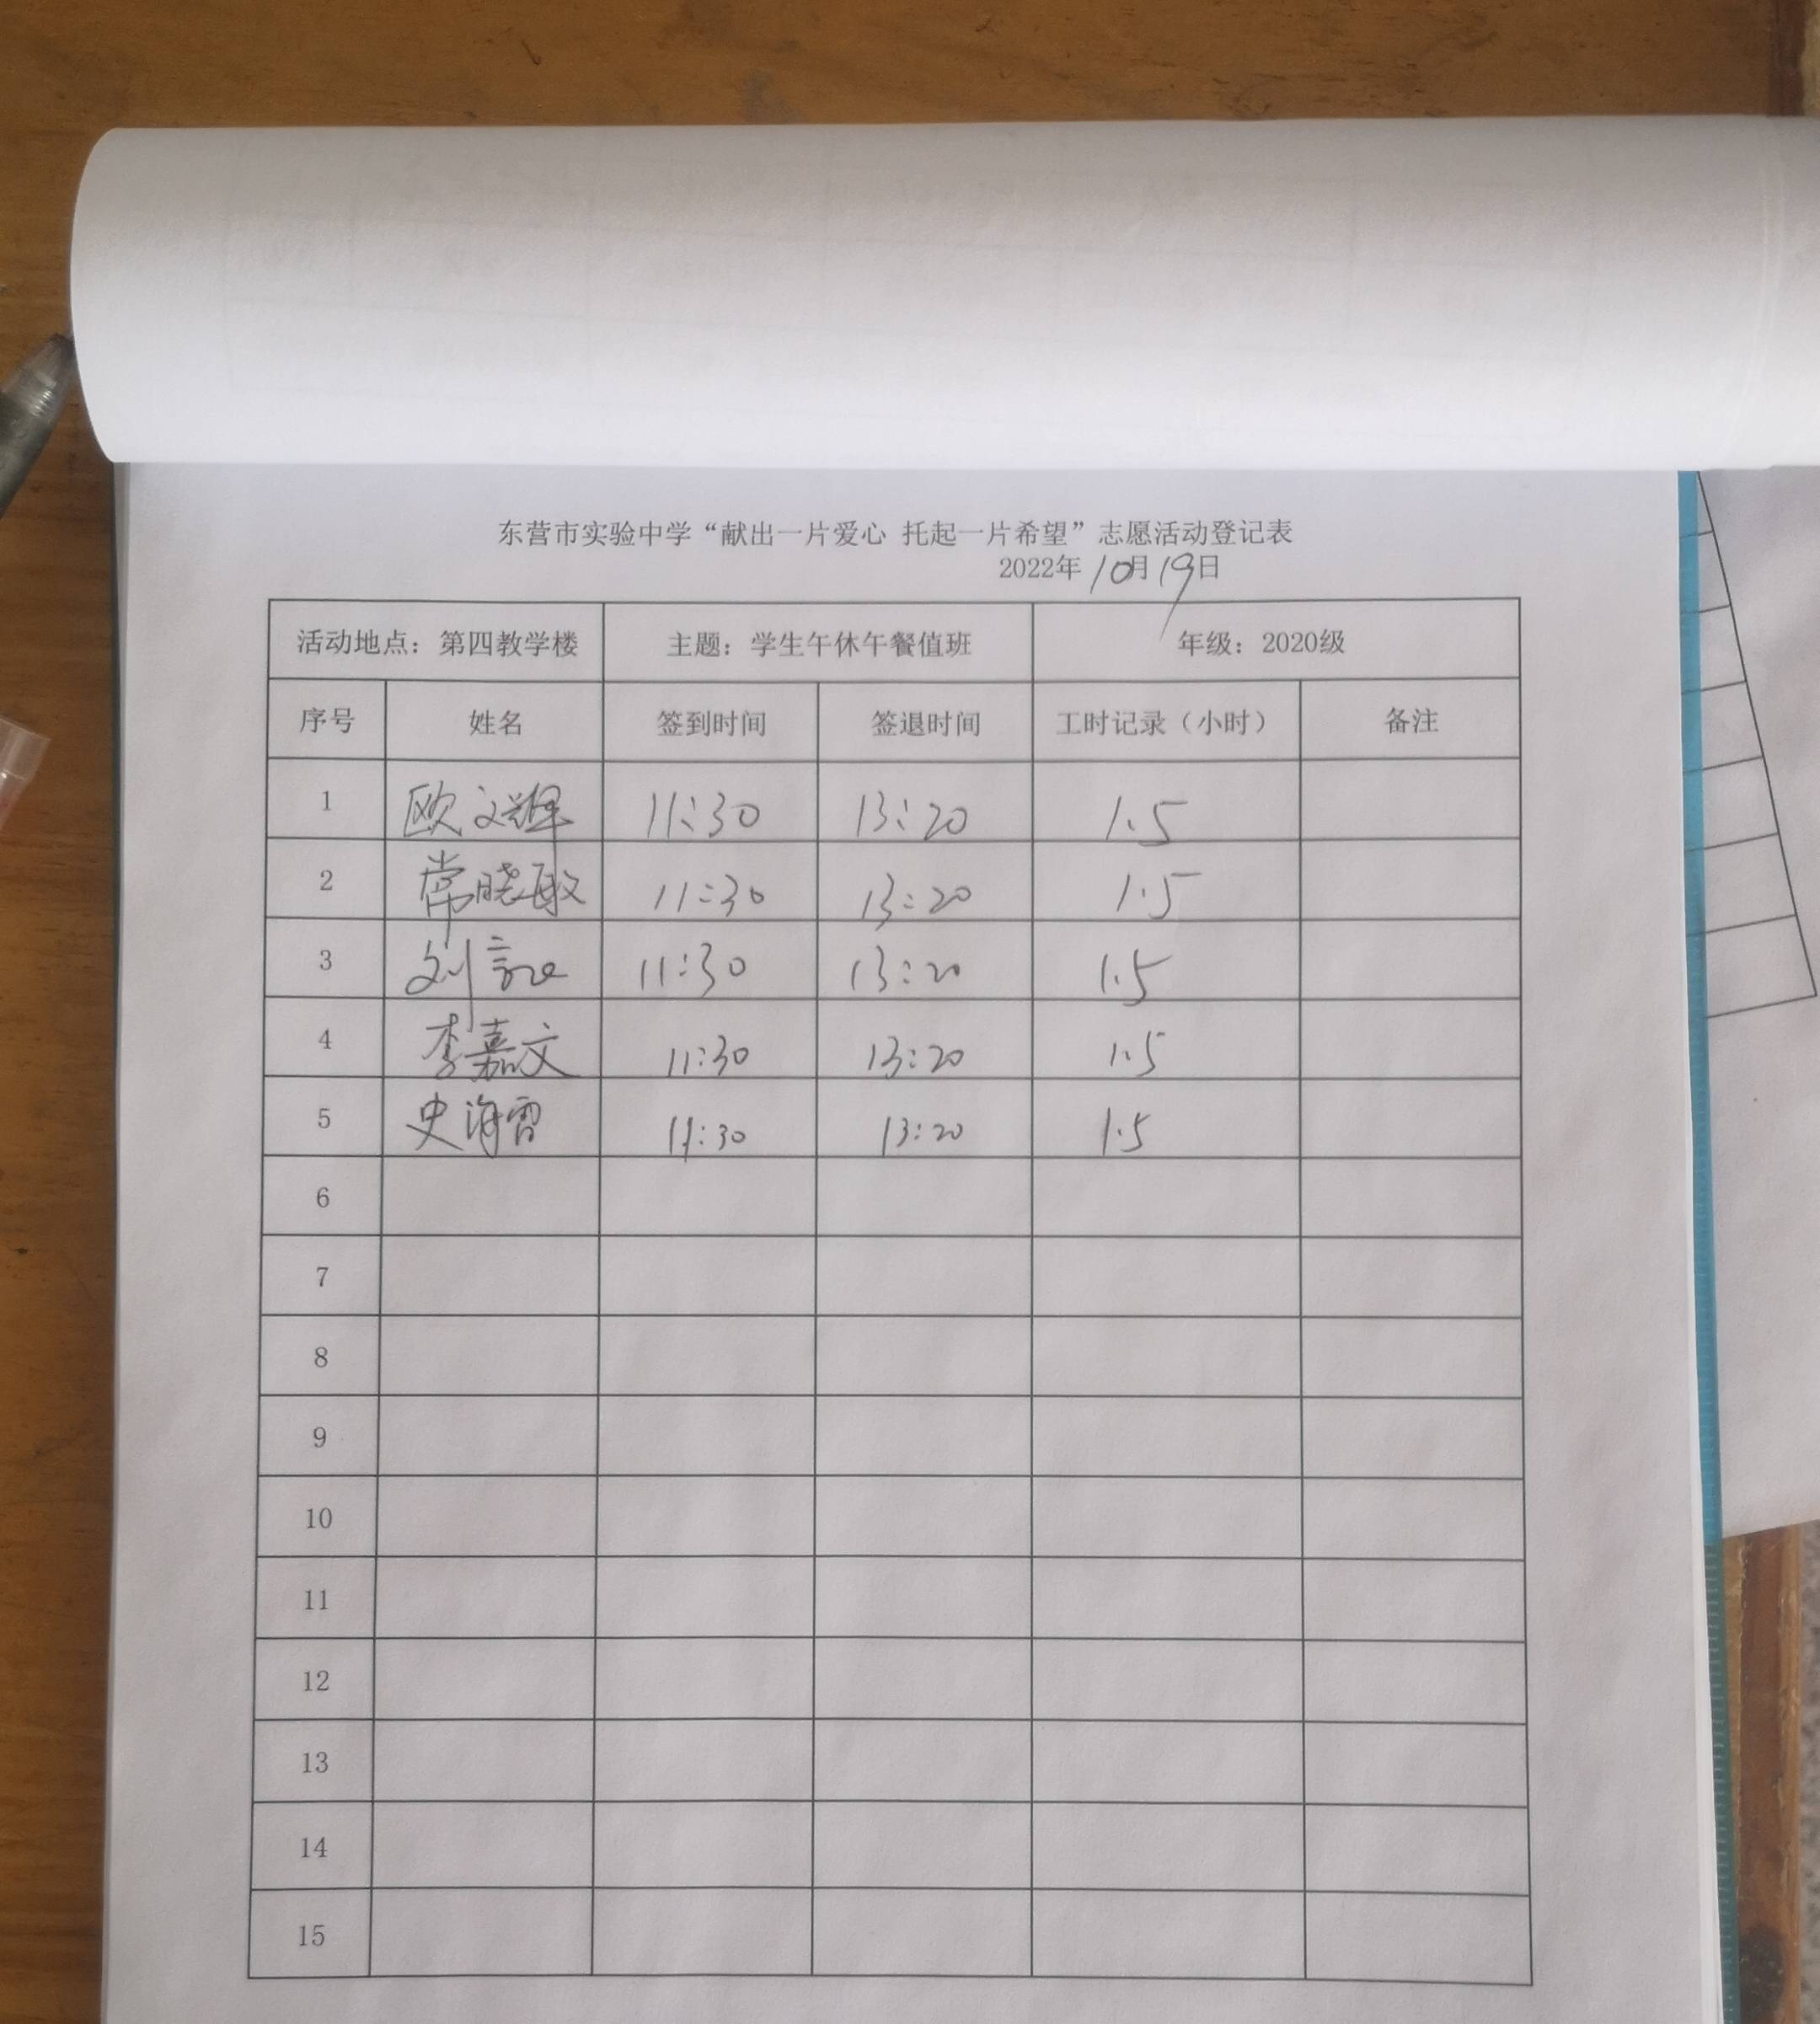 东营市实验中学“献出一片爱心 托起一片希望”志愿活动登记表
2022年10月19日
活动地点：第四教学楼 主题：学生午休午餐值班 年级：2020级
序号 姓名 签到时间 签退时间 工时记录（小时） 备注
1 欧文 11:30 13:20 1.5
2 常晓敏 11:30 13:20 1.5
3 刘 11:30 13:20 1.5
4 李嘉文 11:30 13:20 1.5
5 史海霄 11:30 13:20 1.5
6
7
8
9
10
11
12
13
14
15